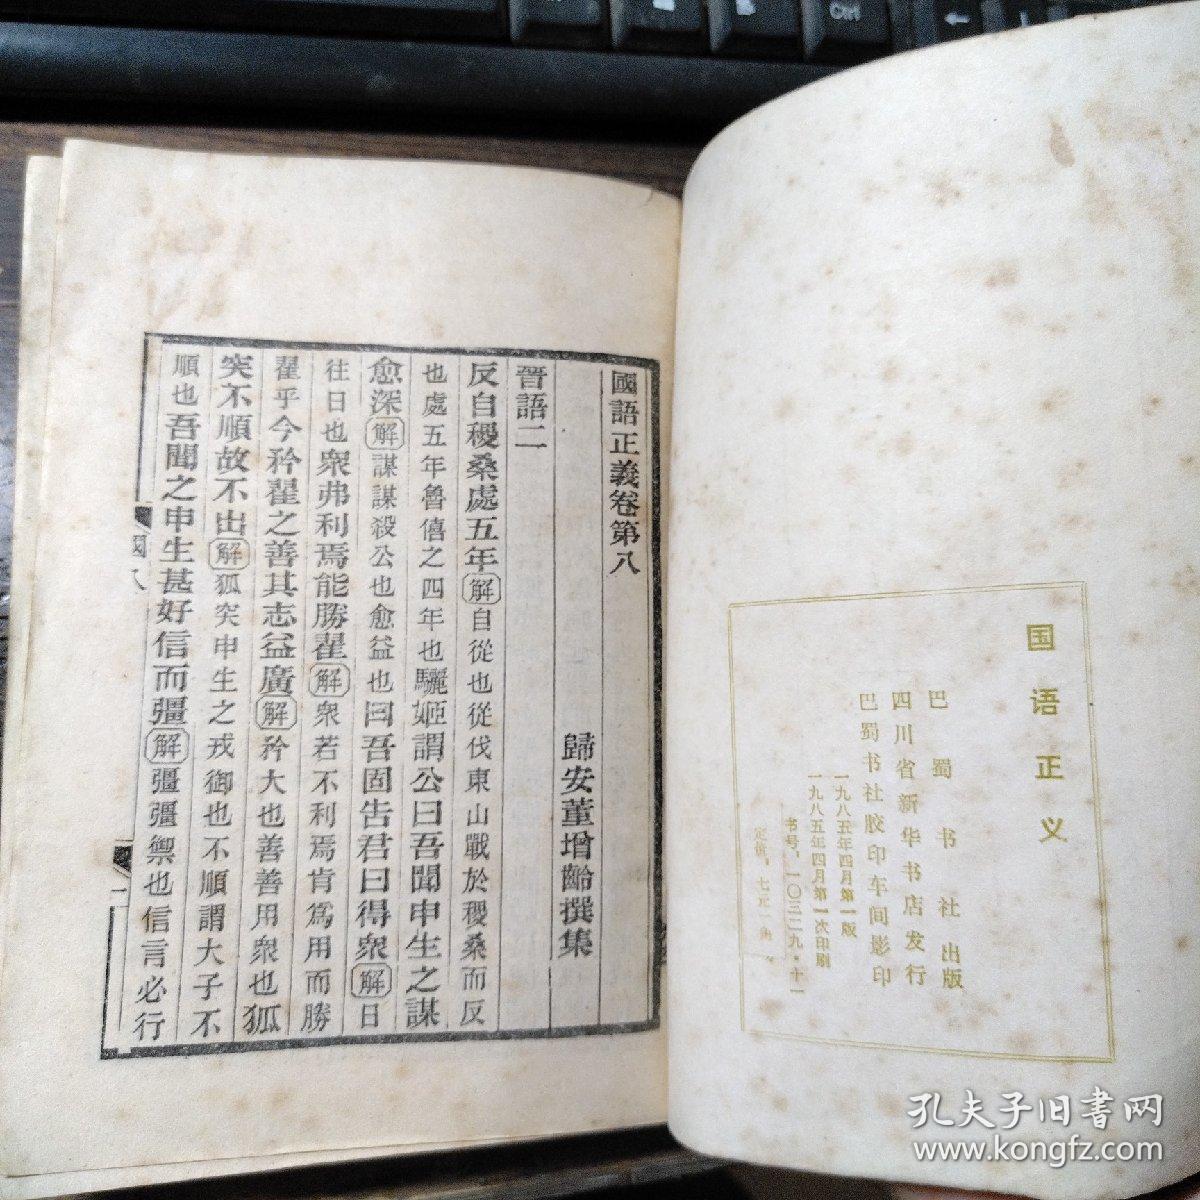 国语正义
巴蜀书社出版
四川省新华书店发行
巴蜀书社胶印车间影印
一九八五年四月第一版
一九八五年四月第一次印刷
书号：一〇三二九·十一
定价：七元一角
國語正義卷第八
歸安董增齡撰集
晉語二
反自稷桑處五年解自從也從伐東山戰於稷桑而反
也處五年魯僖之四年也驪姬謂公曰吾聞申生之謀
愈深解謀謀殺公也愈益也曰吾固告君曰得衆解日
往日也衆弗利焉能勝翟解衆若不利焉肯爲用而勝
翟乎今矜翟之善其志益廣解矜大也善善用衆也狐
突不順故不出解狐突申生之戎御也不順謂大子不
順也吾聞之申生甚好信而彊解彊彊禦也信言必行
國八
一
Ctrl
孔夫子旧书网
www.kongfz.com